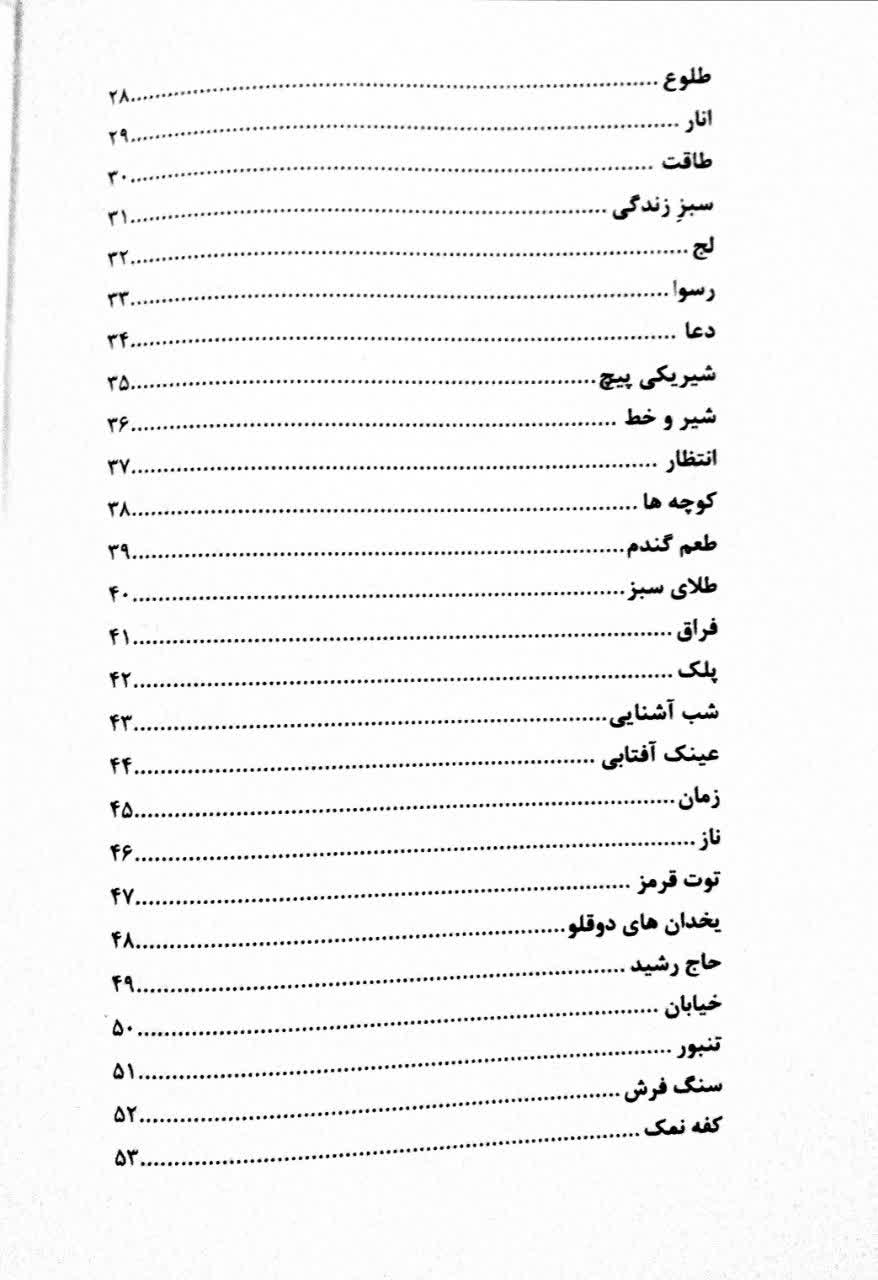 طلوع ........................ ۲۸
انار ........................ ۲۹
طاقت ........................ ۳۰
سبزِ زندگی ........................ ۳۱
لج ........................ ۳۲
رسوا ........................ ۳۳
دعا ........................ ۳۴
شیریکی پیچ ........................ ۳۵
شیر و خط ........................ ۳۶
انتظار ........................ ۳۷
کوچه ها ........................ ۳۸
طعم گندم ........................ ۳۹
طلای سبز ........................ ۴۰
فراق ........................ ۴۱
پلک ........................ ۴۲
شب آشنایی ........................ ۴۳
عینک آفتابی ........................ ۴۴
زمان ........................ ۴۵
ناز ........................ ۴۶
توت قرمز ........................ ۴۷
یخدان های دوقلو ........................ ۴۸
حاج رشید ........................ ۴۹
خیابان ........................ ۵۰
تنبور ........................ ۵۱
سنگ فرش ........................ ۵۲
کفه نمک ........................ ۵۳